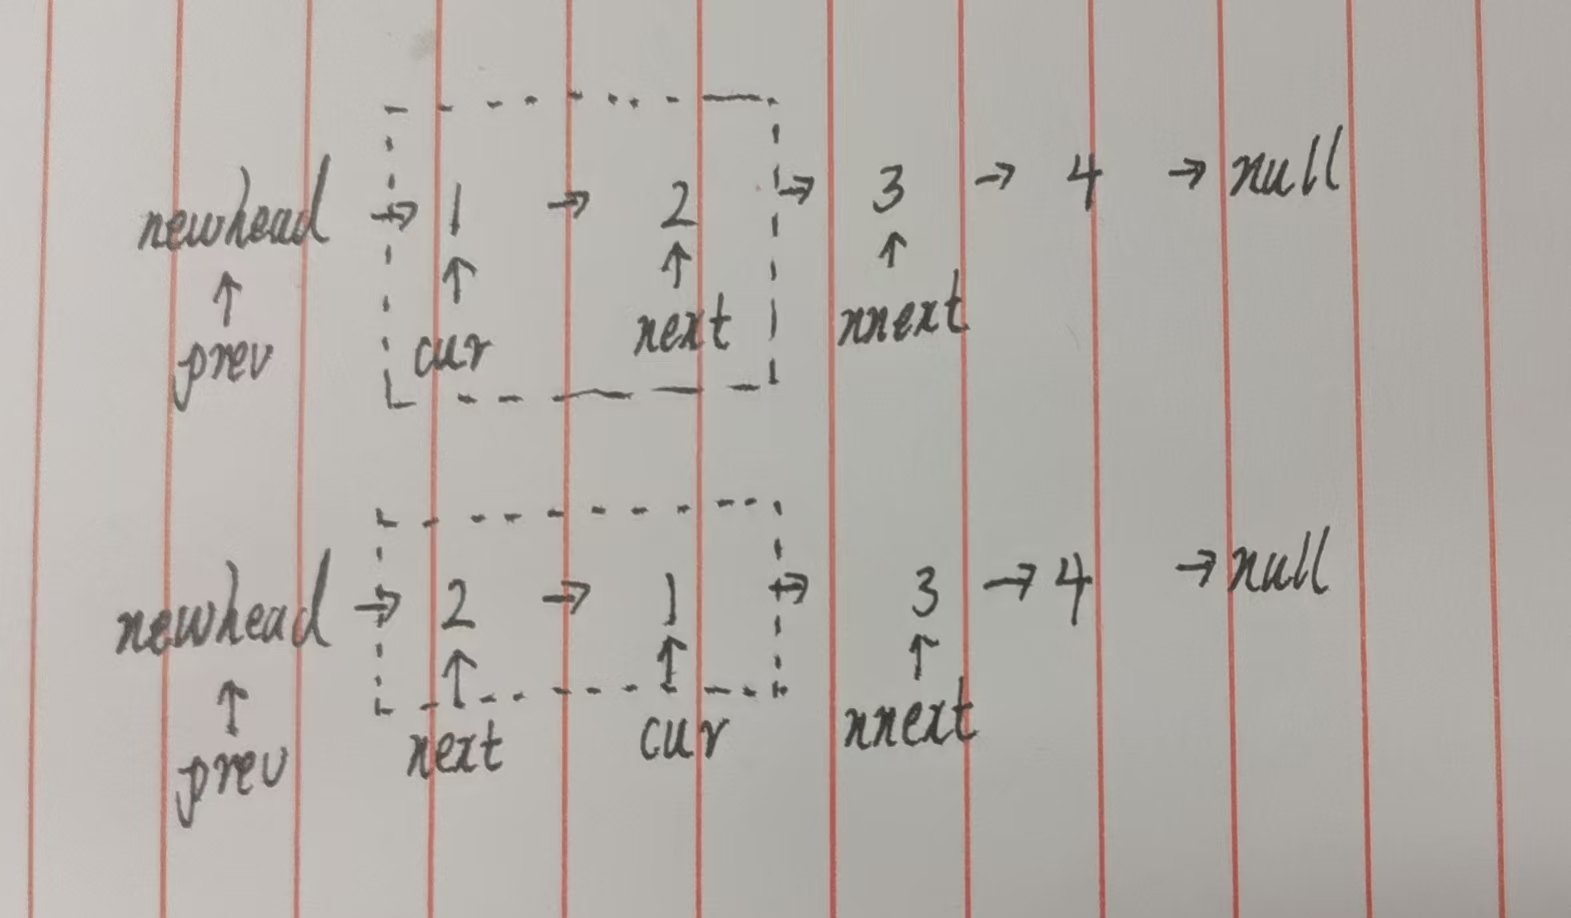 newhead → 1 → 2 → 3 → 4 → null
↑ ↑ ↑ ↑
prev cur next nnext
newhead → 2 → 1 → 3 → 4 → null
↑ ↑ ↑ ↑
prev next cur nnext